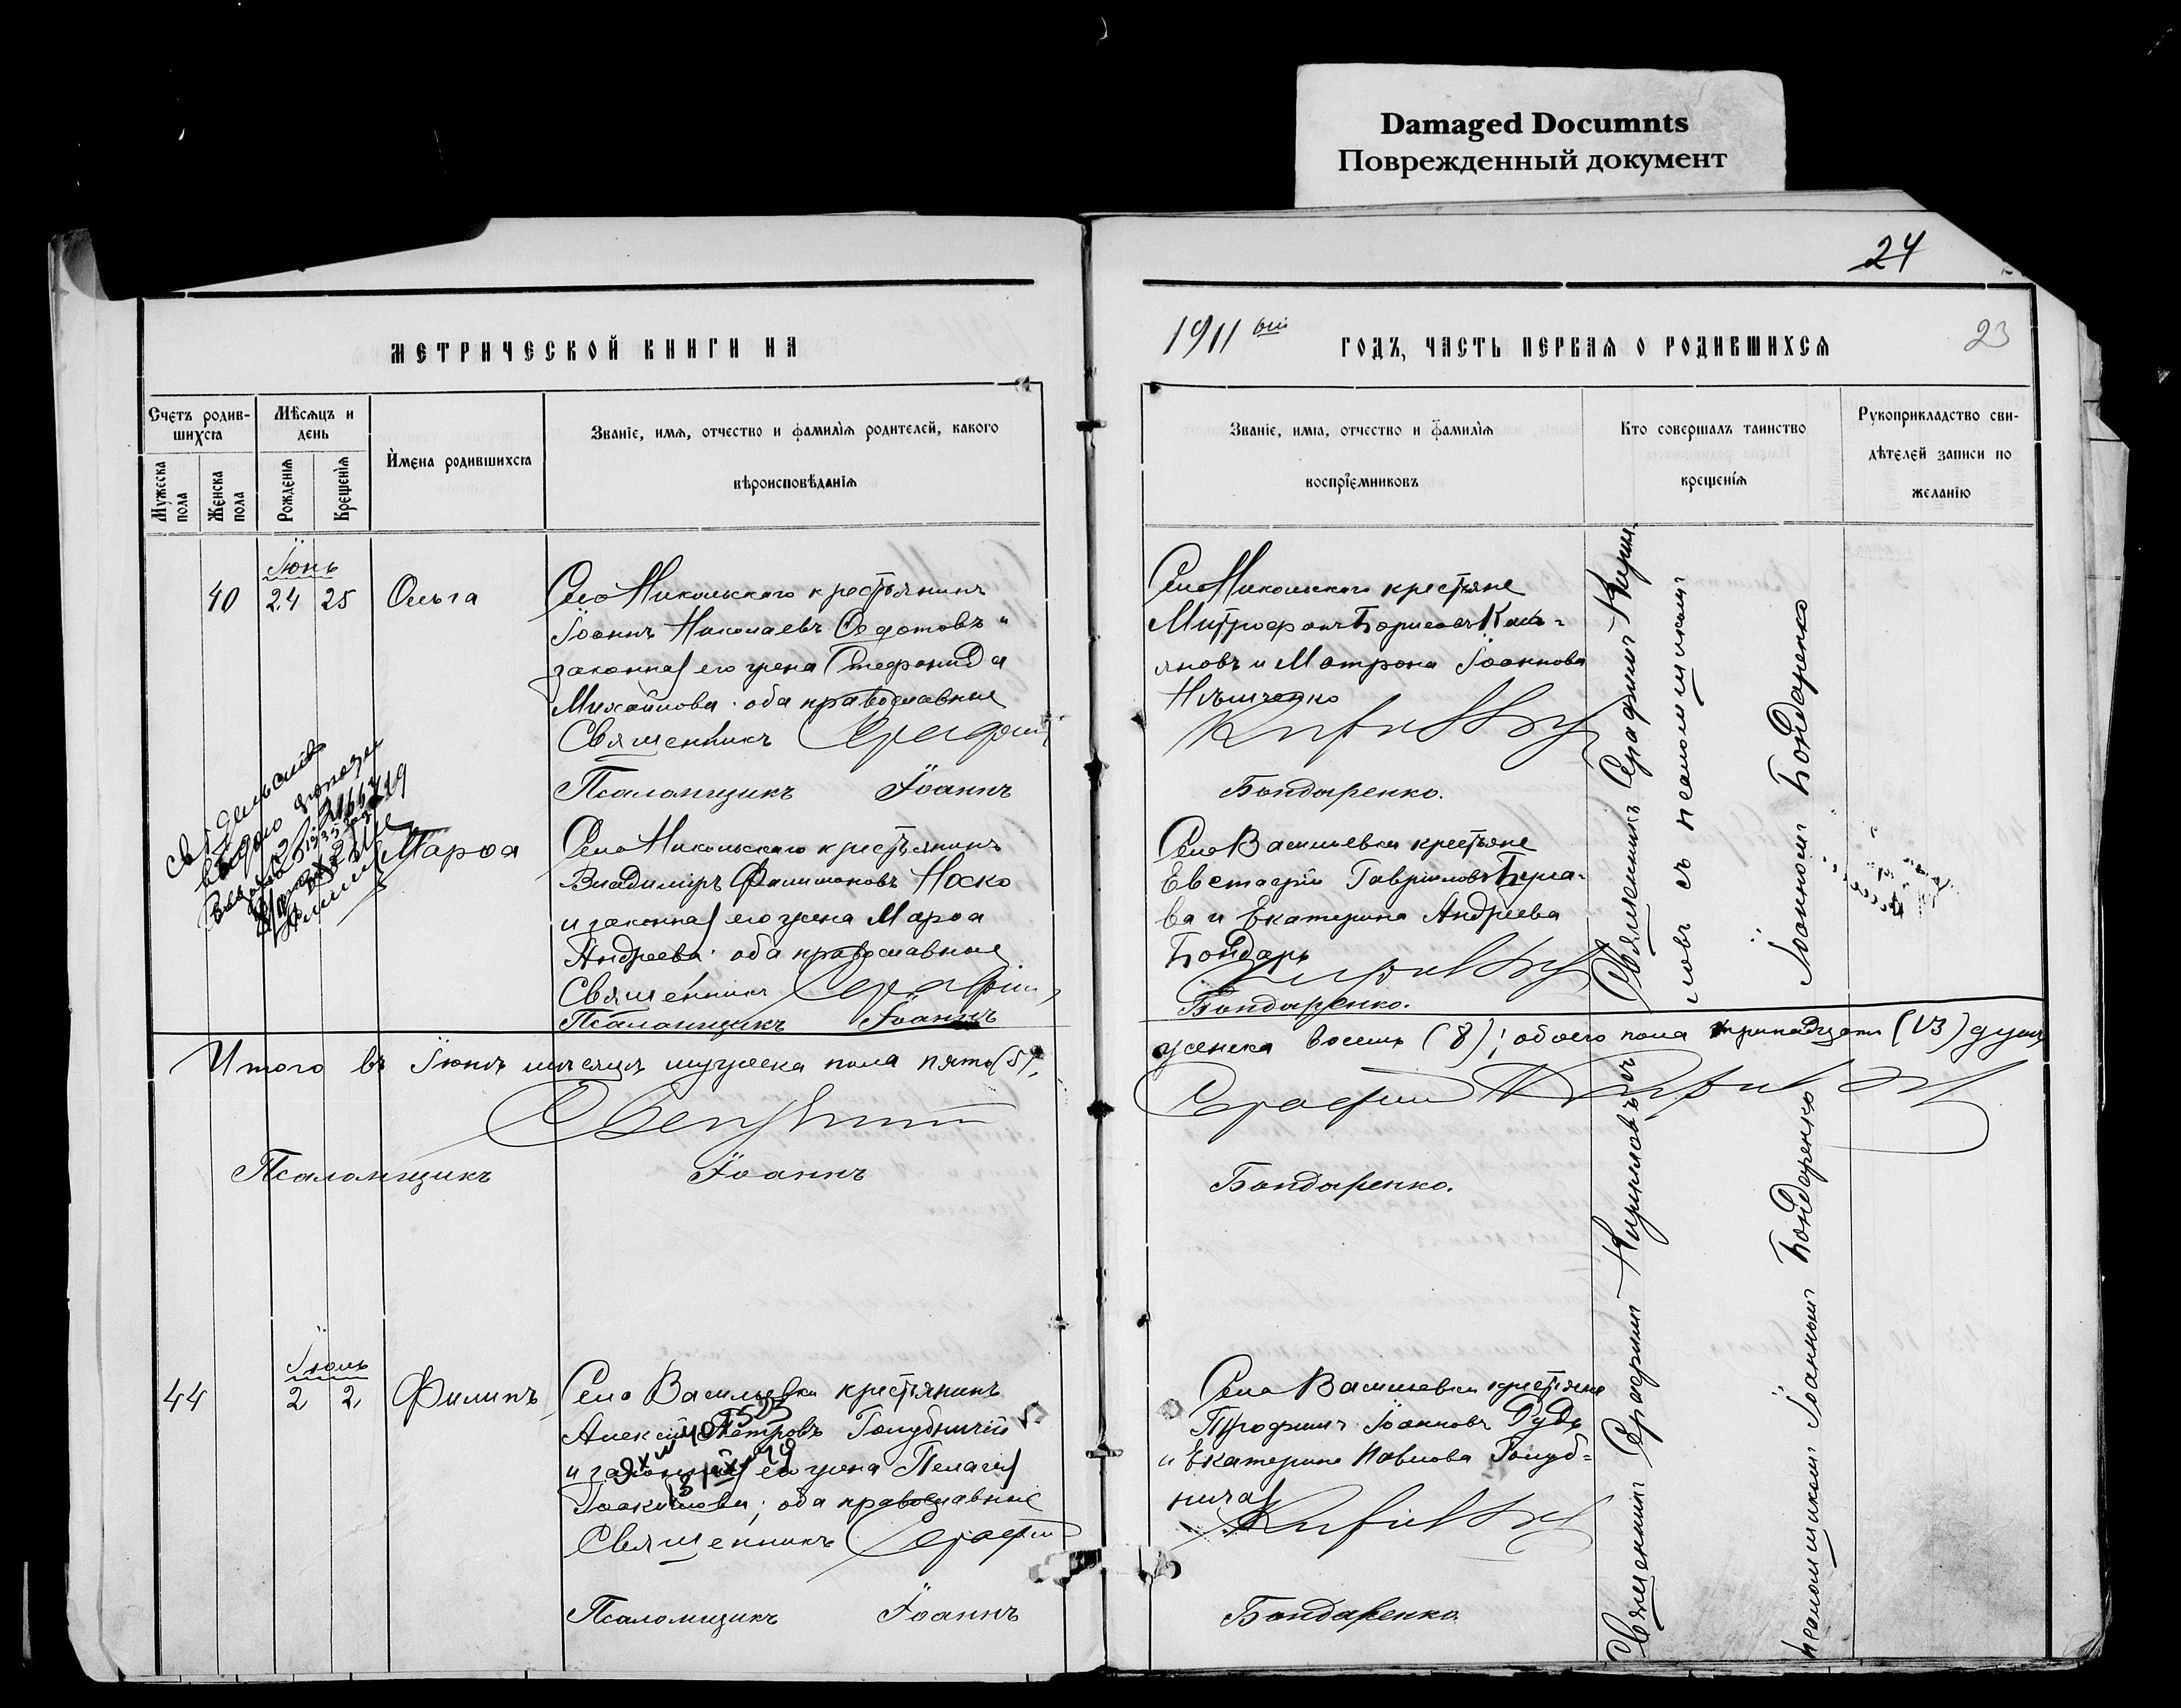 Damaged Documnts
Поврежденный документ
24
МЕТРИЧЕСКОЙ КНИГИ НА
1911 ый
ГОДЪ, ЧАСТЬ ПЕРВАЯ О РОДИВШИХСЯ
23
Счетъ родив-
шихся
Мужеска пола
Женска пола
Мѣсяцъ и
день
Рожденія
Крещенія
Имена родившихся
Званіе, имя, отчество и фамилія родителей, какого
вѣроисповѣданія
Званіе, имя, отчество и фамилія
воспріемниковъ
Кто совершалъ таинство
крещенія
Рукоприкладство сви-
дѣтелей записи по
желанію
Іюнь
40 24 25 Ольга
Село Никольскаго крестьянинъ
Іоаннъ Николаевъ Ѳедотовъ и
законная его жена Стефанида
Михайлова оба православные
Священникъ Серафим
Псаломщикъ Іоаннъ
Село Никольскаго крестьяне
Митрофанъ Борисовъ
яновъ и Матрона Іоаннова
Бондаренко.
Священникъ Серафимъ Кирил-
ловъ съ псаломщикомъ
Іоанномъ Бондаренко
Марѳа
Село Никольскаго крестьянинъ
Владиміръ Филимоновъ Носко
и законная его жена Марѳа
Андреева оба православные
Священникъ Серафим
Псаломщикъ Іоаннъ
Село Васильевки крестьяне
Евстафій Гавриловъ
ва и Екатерина Андреева
Бондарь
Бондаренко.
Итого въ Іюнѣ мѣсяцѣ мужеска пола пять (5),
женска восемь (8); обоего пола тринадцать (13) душъ
Священникъ
Серафим Кирилловъ
Псаломщикъ Іоаннъ
Бондаренко.
Іюль
44 2 2 Филипъ
Село Васильевки крестьянинъ
Алексій Петровъ Голубничій
и законная его жена Пелагія
Іоакимова; оба православные
Священникъ Серафим
Псаломщикъ Іоаннъ
Село Васильевки крестьяне
Трофимъ Іоанновъ Рудь
и Екатерина Павлова Голуб-
ничая
Бондаренко
Священникъ Серафимъ Кирилловъ съ
псаломщикомъ Іоанномъ Бондаренко